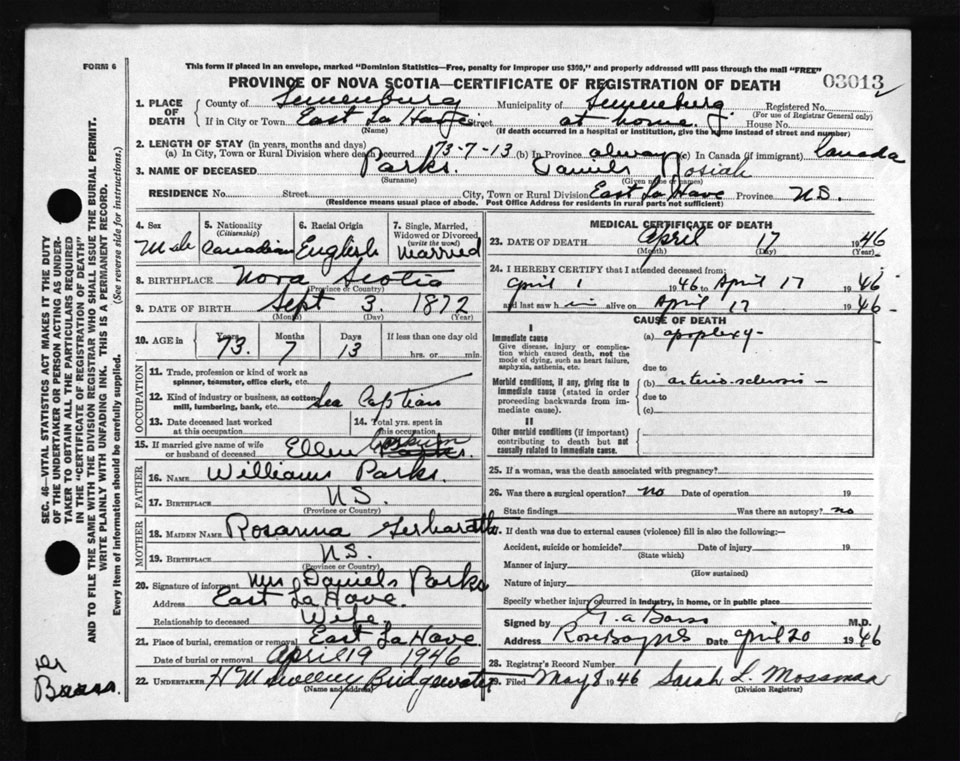 FORM 6
This form if placed in an envelope, marked "Dominion Statistics—Free, penalty for improper use $300," and properly addressed will pass through the mail "FREE"
PROVINCE OF NOVA SCOTIA—CERTIFICATE OF REGISTRATION OF DEATH
03013
1. PLACE OF DEATH
County of Lunenburg Municipality of Lunenburg Registered No.
(For use of Registrar General only)
If in City or Town East La Have Street at home House No.
(Name) (If death occurred in a hospital or institution, give the name instead of street and number)
2. LENGTH OF STAY (in years, months and days)
(a) In City, Town or Rural Division where death occurred 73-7-13 (b) In Province always (c) In Canada (if immigrant) Canada
3. NAME OF DECEASED Parks. Daniels Josiah
(Surname) (Given name or names)
RESIDENCE No. Street City, Town or Rural Division East La Have Province N.S.
(Residence means usual place of abode. Post Office Address for residents in rural parts not sufficient)
4. Sex Male
5. Nationality (Citizenship) Canadian
6. Racial Origin English
7. Single, Married, Widowed or Divorced (write the word) Married
8. BIRTHPLACE Nova Scotia
(Province or Country)
9. DATE OF BIRTH Sept 3. 1872
(Month) (Day) (Year)
10. AGE in Years Months Days If less than one day old
73. 7 13 hrs. or min.
OCCUPATION
11. Trade, profession or kind of work as spinner, teamster, office clerk, etc.
12. Kind of industry or business, as cotton mill, lumbering, bank, etc. Sea Captian
13. Date deceased last worked at this occupation
14. Total yrs. spent in this occupation
15. If married give name of wife or husband of deceased Ellen
FATHER
16. NAME Williams Parks.
17. BIRTHPLACE N.S.
(Province or Country)
MOTHER
18. MAIDEN NAME Rosanna
19. BIRTHPLACE N.S.
(Province or Country)
20. Signature of informant Mrs Daniels Parks
Address East La Have.
Relationship to deceased Wife.
21. Place of burial, cremation or removal East La Have
Date of burial or removal April 19 1946
22. UNDERTAKER H M Sweeny Bridgewater
(Name and address)
MEDICAL CERTIFICATE OF DEATH
23. DATE OF DEATH April 17 1946
(Month) (Day) (Year)
24. I HEREBY CERTIFY that I attended deceased from:
April 1 1946 to April 17 1946
and last saw him alive on April 17 1946
CAUSE OF DEATH
I
Immediate cause (a) apoplexy
Give disease, injury or complication which caused death, not the mode of dying, such as heart failure, asphyxia, asthenia, etc.
due to
Morbid conditions, if any, giving rise to immediate cause (stated in order proceeding backwards from immediate cause).
(b) arterio-sclerosis
due to
(c)
II
Other morbid conditions (if important) contributing to death but not causally related to immediate cause.
25. If a woman, was the death associated with pregnancy?
26. Was there a surgical operation? no Date of operation 19
State findings Was there an autopsy? no
27. If death was due to external causes (violence) fill in also the following:—
Accident, suicide or homicide? Date of injury 19
(State which)
Manner of injury
(How sustained)
Nature of injury
Specify whether injury occurred in industry, in home, or in public place
Signed by G. a Barss M.D.
Address Rose Bay N.S Date April 20 1946
28. Registrar's Record Number
29. Filed May 8 1946 Sarah L. Mossman
(Division Registrar)
SEC. 46—VITAL STATISTICS ACT MAKES IT THE DUTY
OF THE UNDERTAKER OR PERSON ACTING AS UNDERTAKER
TO OBTAIN ALL THE PARTICULARS REQUIRED
IN THE "CERTIFICATE OF REGISTRATION OF DEATH"
AND TO FILE THE SAME WITH THE DIVISION REGISTRAR WHO SHALL ISSUE THE BURIAL PERMIT.
WRITE PLAINLY WITH UNFADING INK. THIS IS A PERMANENT RECORD.
Every item of information should be carefully supplied. (See reverse side for instructions.)
Dr
Barss.